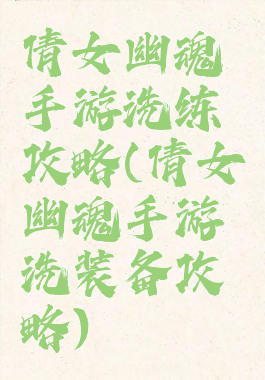 倩女幽魂
手游洗练
攻略(倩女
幽魂手游
洗装备攻
略)